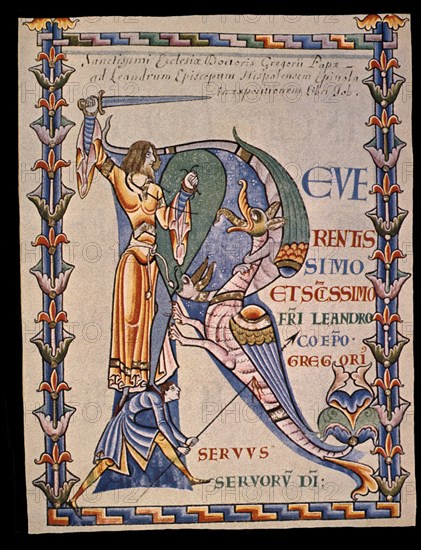 Sanctissimi Ecclesiæ Doctoris Gregorii Papæ
ad Leandrum Episcopum Hispalensem Epistola
in expositionem Libri Job.
REVE
RENTIS
SIMO
ET SCISSIMO
FRI LEANDRO
COEPO·
GREGORI
SERVVS
SERVORV DI;
PHOTO12